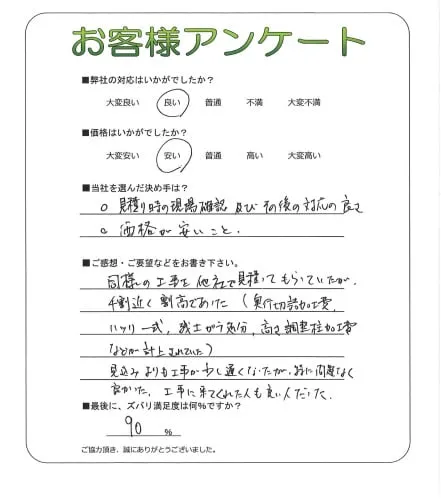 お客様アンケート
■弊社の対応はいかがでしたか?
大変良い 良い 普通 不満 大変不満
■価格はいかがでしたか?
大変安い 安い 普通 高い 大変高い
■当社を選んだ決め手は?
○ 見積り時の現場確認 及び その後の対応の良さ
○ 価格が安いこと。
■ご感想・ご要望などをお書き下さい。
同様の工事を他社で見積ってもらっていたが、
4割近く割高であった(奥行切詰加工費、
ハツリ一式、残土ガラ処分、高さ調整柱加工費
などが計上されていた)
見込みよりも工事が少し遅くなったが、特に問題なく
良かった。工事に来てくれた人も良い人だった。
■最後に、ズバリ満足度は何%ですか?
90 %
ご協力頂き、誠にありがとうございました。